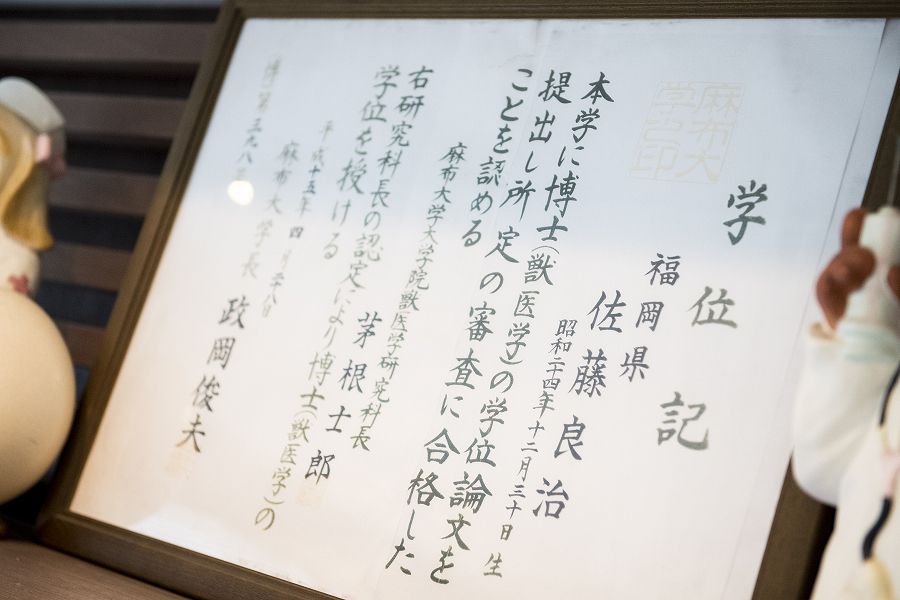 学位記
麻布大
学之印
福岡県
佐藤良治
昭和二十四年十二月三十日生
本学に博士(獣医学)の学位論文を
提出し所定の審査に合格した
ことを認める
麻布大学大学院獣医学研究科長
茅根士郎
右研究科長の認定により博士(獣医学)の
学位を授ける
平成十五年四月二十八日
麻布大学長
政岡俊夫